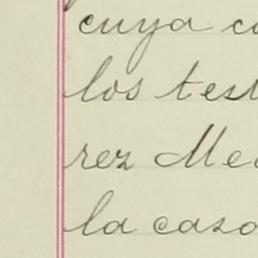 cuya co
los test
rez Me
la casa